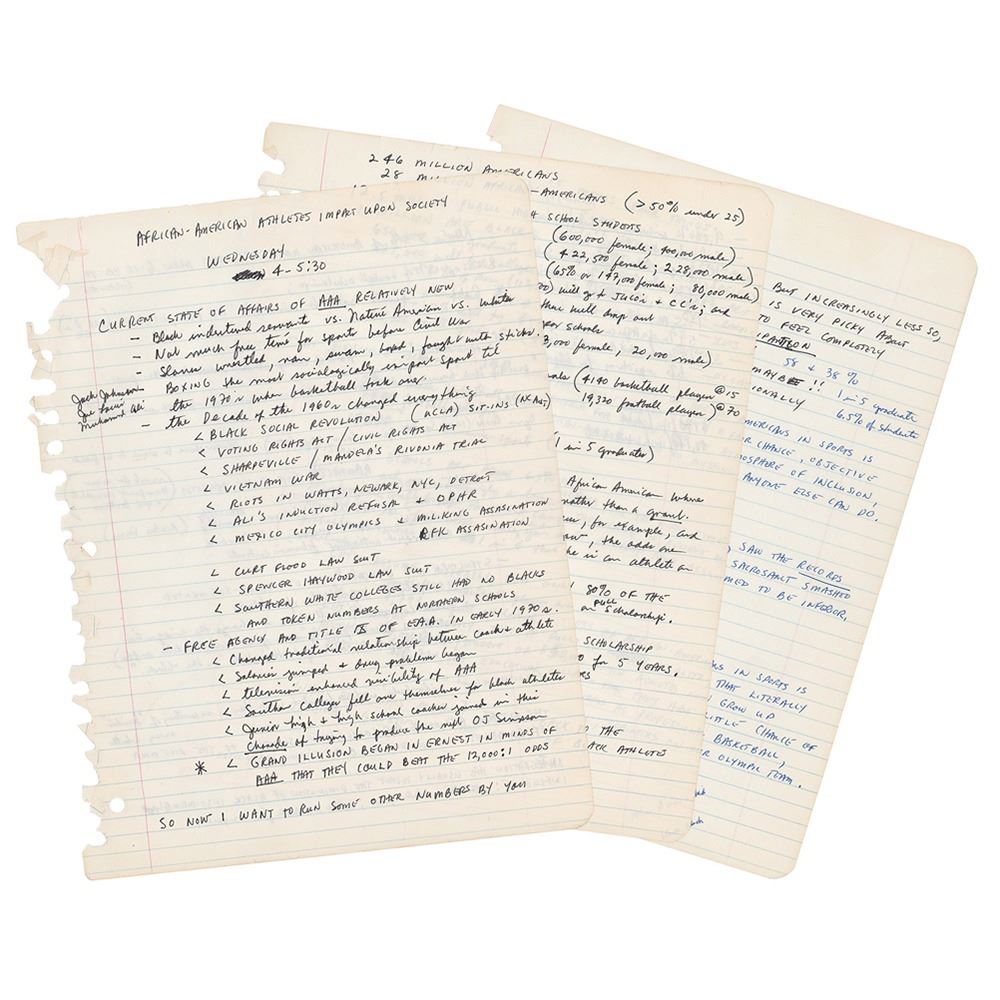 AFRICAN-AMERICAN ATHLETES IMPACT UPON SOCIETY
WEDNESDAY
4-5:30
CURRENT STATE OF AFFAIRS OF AAA RELATIVELY NEW
- Black indentured servants vs. Native American vs. white
- Not much free time for sports before Civil War
- Slaves wrestled, ran, swam, boxed, fought with sticks.
Jack Johnson
Joe Louis
Muhamad Ali
- BOXING the most sociologically import sport til
the 1970's when basketball took over.
- the Decade of the 1960's changed everything
< BLACK SOCIAL REVOLUTION (UCLA) SIT-INS (NC A&T)
< VOTING RIGHTS ACT / CIVIL RIGHTS ACT
< SHARPEVILLE / MANDELA'S RIVONIA TRIAL
< VIETNAM WAR
< RIOTS IN WATTS, NEWARK, NYC, DETROIT
< ALI'S INDUCTION REFUSAL & OPHR
< MEXICO CITY OLYMPICS & MLKING ASSASINATION
RFK ASSASINATION
< CURT FLOOD LAW SUIT
< SPENCER HAYWOOD LAW SUIT
< SOUTHERN WHITE COLLEGES STILL HAD NO BLACKS
AND TOKEN NUMBERS AT NORTHERN SCHOOLS
- FREE AGENCY AND TITLE IX OF E.A.A. IN EARLY 1970's.
< Changed traditional relationship between coach & athlete
< Salaries jumped & drug problems began
< television enhanced visibility of AAA
< Southern Colleges fell over themselves for black athletes
< Junior high & high school coaches joined in this
charade of trying to produce the next OJ Simpson
* < GRAND ILLUSION BEGAN IN ERNEST IN MINDS OF
AAA THAT THEY COULD BEAT THE 12,000:1 ODDS
SO NOW I WANT TO RUN SOME OTHER NUMBERS BY YOU
246 MILLION AMERICANS
28 M
-AMERICANS (>50% under 25)
SCHOOL STUDENTS
(600,000 female; 400,000 male)
(422,500 female; 228,000 male)
(65% or 147,000 female; 80,000 male)
will go to JUCO's & CC's; and
will drop out
schools
3,000 female, 20,000 male)
(4140 basketball players @ 15
19,320 football players) @ 70
1 in 5 graduates)
African American where
rather than a grant.
for example, and
the odds are
he is an athlete on
80% OF THE
on full scholarship.
SCHOLARSHIP
0 for 5 YEARS.
THE
ACK ATHLETES
BUT INCREASINGLY LESS SO,
IS VERY PICKY ABOUT
TO FEEL COMPLETELY
IPATION
58 & 38 %
MAYBE!!
1 in 5 graduate
IONALLY
6.5% of students
MERICANS IN SPORTS IS
R CHANCE, OBJECTIVE
OSPHERE OF INCLUSION,
ANYONE ELSE CAN DO.
SAW THE RECORDS
SACROSANCT SMASHED
MED TO BE INFERIOR.
KS IN SPORTS IS
THAT LITERALLY
GROW UP
LITTLE CHANCE OF
BASKETBALL,
R OLYMPIC TEAM.